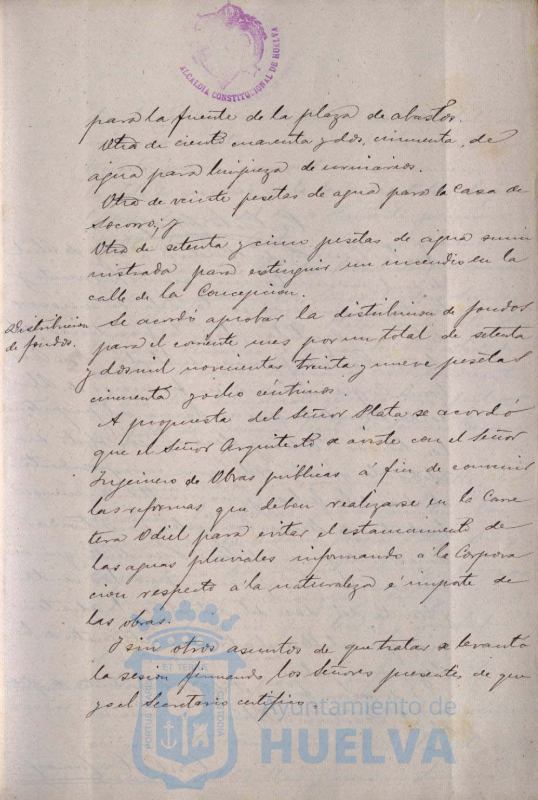 ALCALDIA CONSTITUCIONAL DE HUELVA
para la fuente de la plaza de abastos.
Otra de ciento cuarenta y dos, cincuenta, de
agua para limpieza de urinarios.
Otra de veinte pesetas de agua para la Casa de
Socorro; y
Otra de setenta y cinco pesetas de agua sumi
nistrada para extinguir un incendio en la
calle de la Concepcion.
Distribucion
de fondos.
Se acordó aprobar la distribucion de fondos
para el corriente mes por un total de setenta
y dos mil novecientas treinta y nueve pesetas
cincuenta y ocho céntimos.
A propuesta del Señor Plata se acordó
que el Señor Arquitecto se aviste con el Señor
Ingeniero de Obras públicas á fin de convenir
las reformas que deben realizarse en la Carre
tera Odiel para evitar el estancamiento de
las aguas pluviales informando á la Corpora
cion respecto á la naturaleza é importe de
las obras.
Y sin otros asuntos de que tratar se levantó
la sesion firmando los Señores presentes, de que
yo el Secretario certifico.
Ayuntamiento de
HUELVA